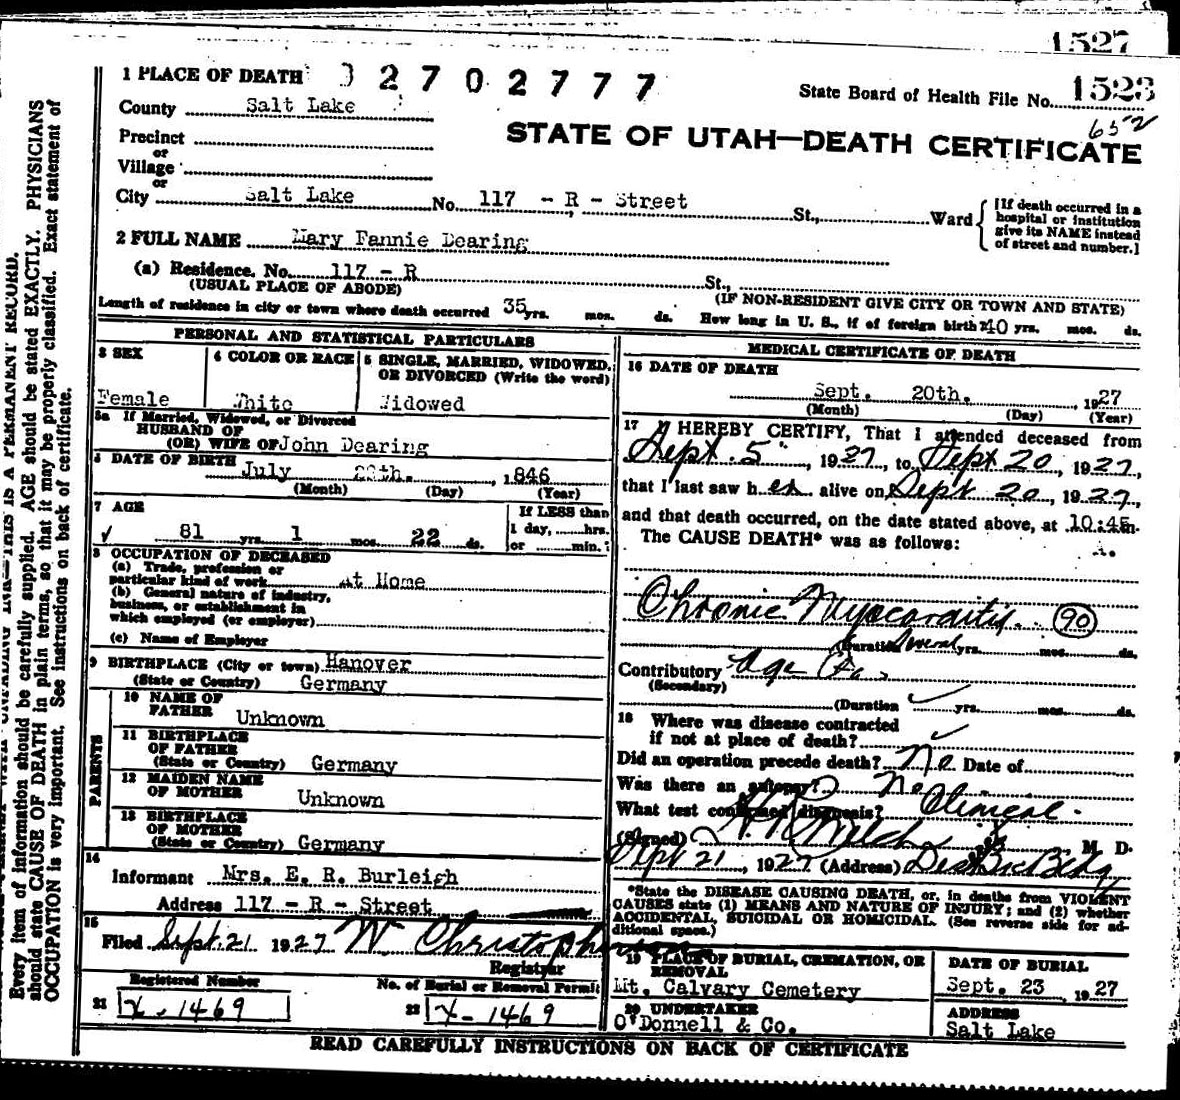 1527
1 PLACE OF DEATH 2702777
State Board of Health File No. 1523
652
County Salt Lake
STATE OF UTAH—DEATH CERTIFICATE
Precinct
or
Village
or
City Salt Lake No. 117 - R - Street St., Ward
[If death occurred in a
hospital or institution
give its NAME instead
of street and number.]
2 FULL NAME Mary Fannie Dearing
(a) Residence. No. 117 - R St.,
(USUAL PLACE OF ABODE) (IF NON-RESIDENT GIVE CITY OR TOWN AND STATE)
Length of residence in city or town where death occurred 35 yrs. mos. ds. How long in U. S., if of foreign birth? 40 yrs. mos. ds.
PERSONAL AND STATISTICAL PARTICULARS
3 SEX
Female
4 COLOR OR RACE
White
5 SINGLE, MARRIED, WIDOWED,
OR DIVORCED (Write the word)
Widowed
5a If Married, Widowed, or Divorced
HUSBAND OF
(OR) WIFE OF John Dearing
6 DATE OF BIRTH July , 1846
(Month) (Day) (Year)
7 AGE
81 yrs. 1 mos. 22 ds.
If LESS than
1 day, hrs.
or min.
8 OCCUPATION OF DECEASED
(a) Trade, profession or
particular kind of work At Home
(b) General nature of industry,
business, or establishment in
which employed (or employer)
(c) Name of Employer
9 BIRTHPLACE (City or town) Hanover
(State or Country) Germany
PARENTS
10 NAME OF
FATHER Unknown
11 BIRTHPLACE
OF FATHER
(State or Country) Germany
12 MAIDEN NAME
OF MOTHER Unknown
13 BIRTHPLACE
OF MOTHER
(State or Country) Germany
14
Informant Mrs. E. R. Burleigh
Address 117 - R - Street
15
Filed Sept. 21 1927 W Christopherson
Registrar
Registered Number
21 X-1469
No. of Burial or Removal Permit
22 X-1469
MEDICAL CERTIFICATE OF DEATH
16 DATE OF DEATH
Sept. 20th. , 1927
(Month) (Day) (Year)
17 I HEREBY CERTIFY, That I attended deceased from
Sept. 5 , 1927, to Sept 20, 1927,
that I last saw her alive on Sept 20, 1927,
and that death occurred, on the date stated above, at 10:45 m.
A.
The CAUSE DEATH* was as follows:
Chronic Myocarditis. 90
(Duration Several yrs. mos. ds.
Contributory Age
(Secondary)
(Duration yrs. mos. ds.
18 Where was disease contracted
if not at place of death?
Did an operation precede death? No Date of
Was there an autopsy? No
What test confirmed diagnosis? Clinical.
(Signed) M. D.
Sept 21, 1927 (Address)
*State the DISEASE CAUSING DEATH, or, in deaths from VIOLENT
CAUSES state (1) MEANS AND NATURE OF INJURY; and (2) whether
ACCIDENTAL, SUICIDAL OR HOMICIDAL. (See reverse side for ad-
ditional space.)
19 PLACE OF BURIAL, CREMATION, OR
REMOVAL
Mt. Calvary Cemetery
DATE OF BURIAL
Sept. 23 , 1927
20 UNDERTAKER
O'Donnell & Co.
ADDRESS
Salt Lake
READ CAREFULLY INSTRUCTIONS ON BACK OF CERTIFICATE
THIS IS A PERMANENT RECORD.
Every item of information should be carefully supplied. AGE should be stated EXACTLY. PHYSICIANS
should state CAUSE OF DEATH in plain terms, so that it may be properly classified. Exact statement of
OCCUPATION is very important. See instructions on back of certificate.